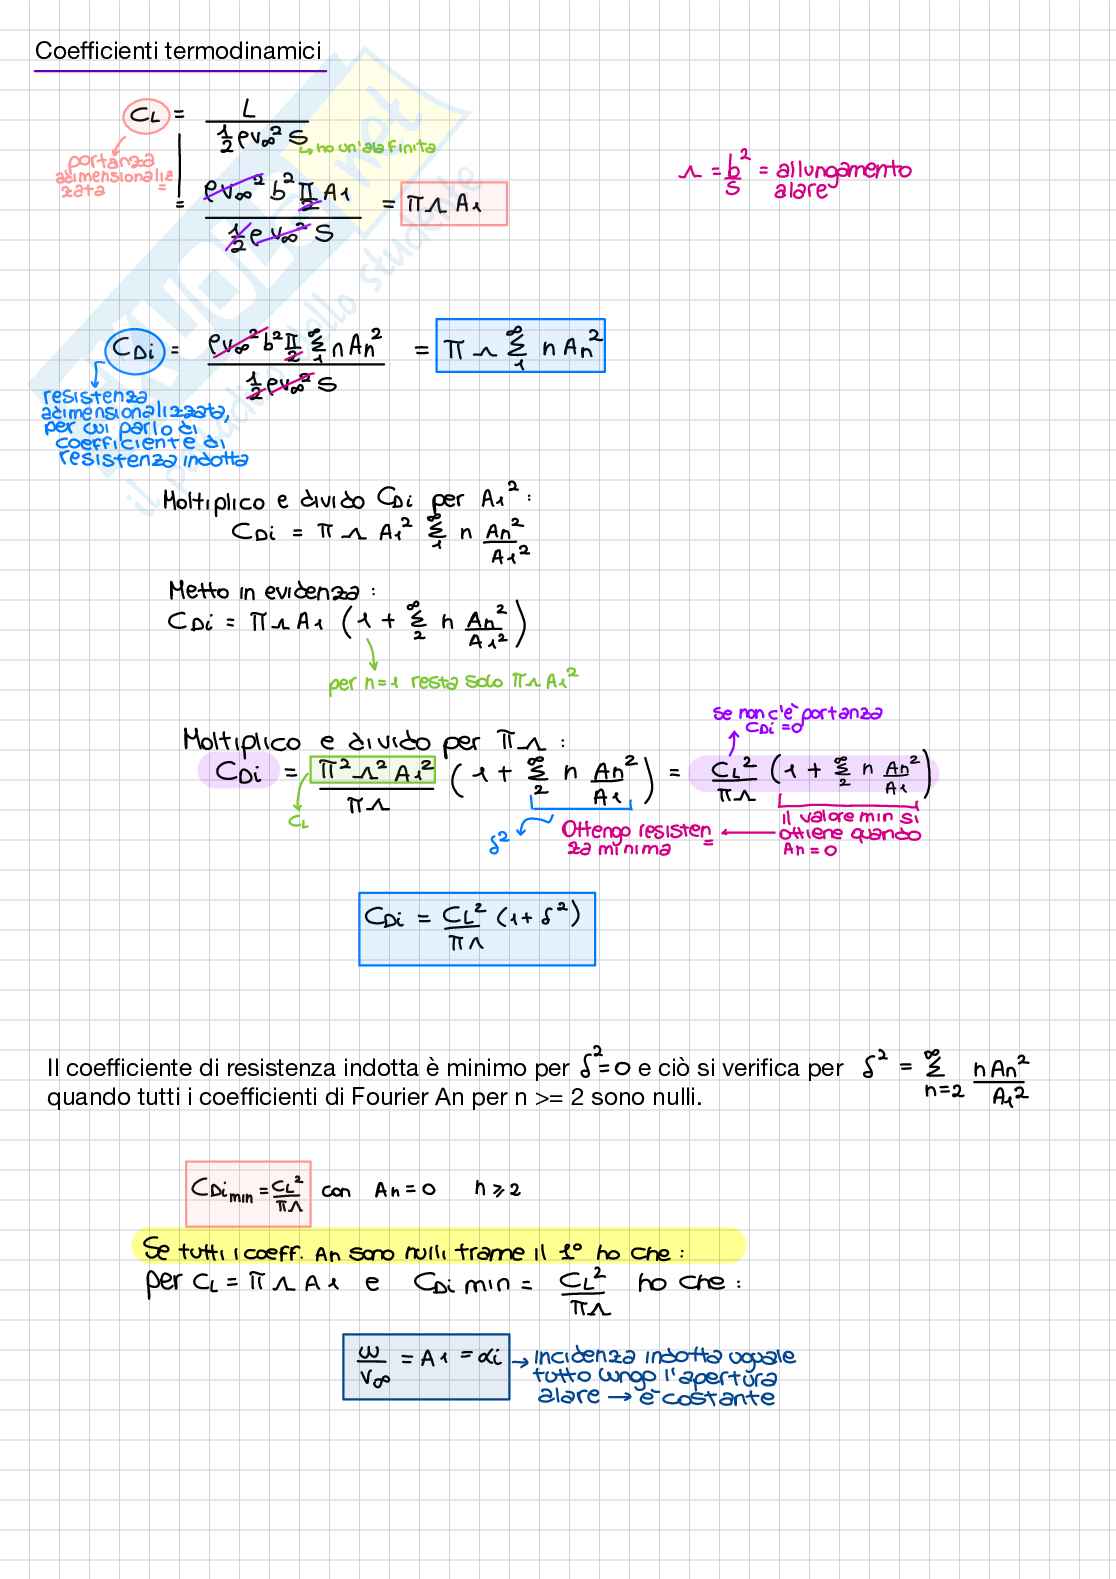 Coefficienti termodinamici
C_L = L / (½ ρ v∞² S)
↳ ho un'ala finita
portanza
adimensionaliz=
zata
= ρv∞² b² π/2 A1 / (½ ρ v∞² S) = π Λ A1
Λ = b²/S = allungamento
alare
C_Di = ρv∞² b² π/2 Σ_1^∞ n An² / (½ ρ v∞² S) = π Λ Σ_1^∞ n An²
resistenza
adimensionalizzata,
per cui parlo di
coefficiente di
resistenza indotta
Moltiplico e divido C_Di per A1² :
C_Di = π Λ A1² Σ_1^∞ n An²/A1²
Metto in evidenza :
C_Di = π Λ A1 (1 + Σ_2^∞ n An²/A1²)
per n=1 resta solo π Λ A1²
se non c'è portanza
C_Di = 0
Moltiplico e divido per π Λ :
C_Di = π² Λ² A1² / (π Λ) (1 + Σ_2^∞ n An²/A1) = C_L²/(π Λ) (1 + Σ_2^∞ n An²/A1)
C_L
δ²
Ottengo resisten=
za minima
← il valore min si
ottiene quando
An = 0
C_Di = C_L²/(π Λ) (1 + δ²)
Il coefficiente di resistenza indotta è minimo per δ²=0 e ciò si verifica per δ² = Σ_{n=2}^∞ n An²/A1²
quando tutti i coefficienti di Fourier An per n >= 2 sono nulli.
C_Di min = C_L²/(π Λ) con An = 0 n ⩾ 2
Se tutti i coeff. An sono nulli trame il 1° ho che :
per C_L = π Λ A1 e C_Di min = C_L²/(π Λ) ho che :
w/v∞ = A1 = αi → incidenza indotta uguale
tutto lungo l'apertura
alare → è costante